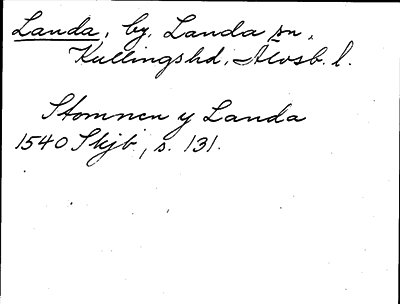 Landa, by, Landa sn,
Kullingshd, Älvsb. l.
Stomnen y Landa
1540 Skjb, s. 131.